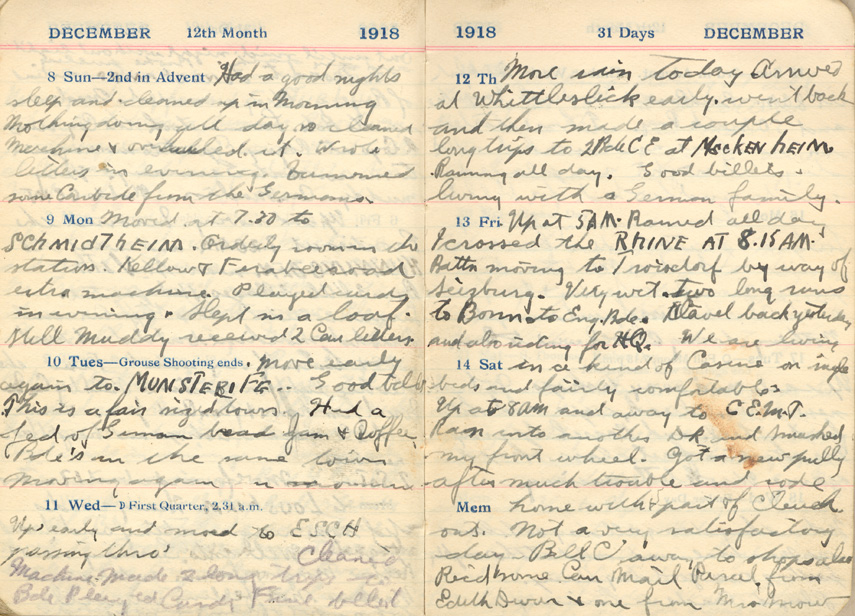 DECEMBER 12th Month 1918
8 Sun—2nd in Advent Had a good nights
sleep and cleaned up in Morning
Nothing doing all day so cleaned
Machine & overhauled it. Wrote
letters in evening. Bummed
some Carbide from the Germans.
9 Mon Moved at 7.30 to
SCHMIDTHEIM. Orderly room in
station. Kellow &
extra machine. Played cards
in evening. Slept in a loaf.
Still Muddy received 2 Can letters.
10 Tues—Grouse Shooting ends. Move early
again to. MUNSTERIFE.. Good billet
This is a fair sized town. Had a
feed of German bread Jam & Coffee.
Bde's in the same town
moving again in
11 Wed—☽ First Quarter, 2.31 a.m.
Up early and moved to ESCH
passing thro' Cleaned
Machine. Made 2 long trips to
Bde Played Cards Fine billet
1918 31 Days DECEMBER
12 Th More rain today Arrived
at Whittleslick early. went back
and then made a couple
long trips to 2nd Bde C E at MECKENHEIM
Raining all day. Good billets.
living with a German family.
13 Fri Up at 5AM. Rained all day
I crossed the RHINE AT 8.15AM.
Battn moving to Troisdorf by way of
Siegburg. Very wet. two long runs
to Bonn to Eng. Bde. Travel back yesterday
and also acting for HQ. We are living
14 Sat in a kind of Casino on single
beds and fairly comfortable.
Up at 8AM and away to C.E.M.T.
Ran into another DR and smashed
my front wheel. Got a new pully
after much trouble and rode
Mem home with part of Clutch
out. Not a very satisfactory
day. Bell C away to shops also
Recd some Can Mail Parcel from
Edith & one from Mrs